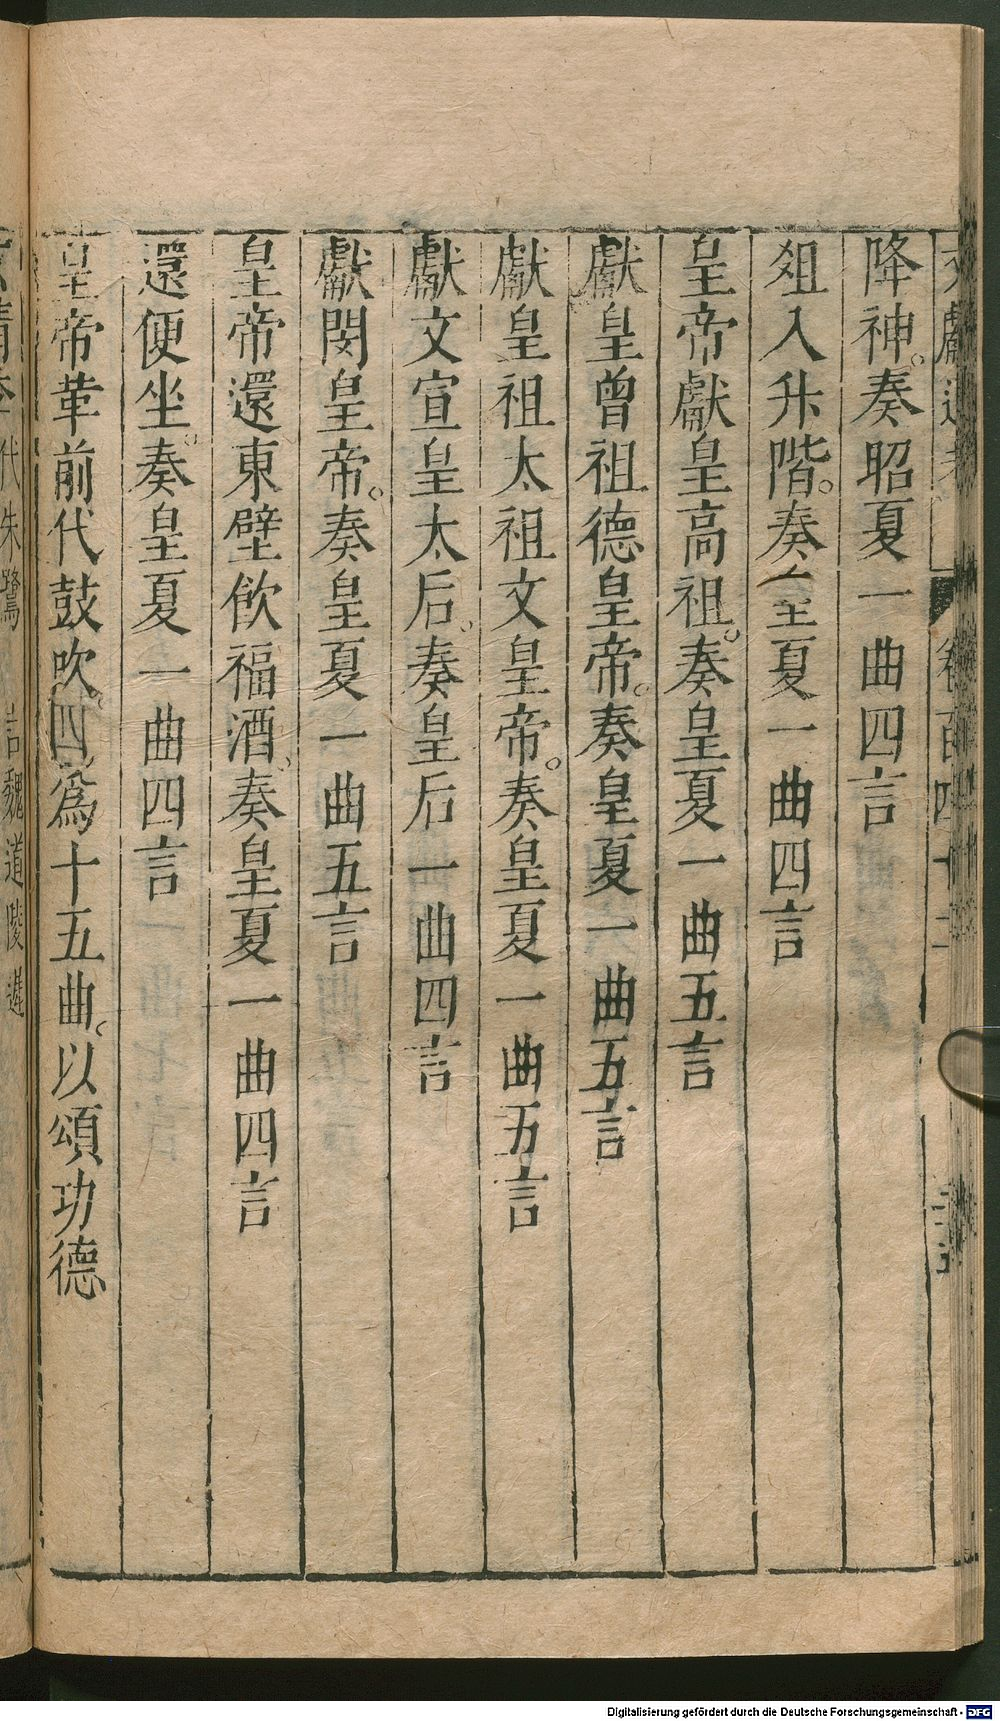 降神。奏昭夏一曲四言
俎入升階。奏皇夏一曲四言
皇帝獻皇高祖。奏皇夏一曲五言
獻皇曾祖德皇帝。奏皇夏一曲五言
獻皇祖太祖文皇帝。奏皇夏一曲五言
獻文宣皇太后。奏皇后一曲四言
獻閔皇帝。奏皇夏一曲五言
皇帝還東壁飲福酒。奏皇夏一曲四言
還便坐。奏皇夏一曲四言
皇帝革前代鼓吹。四爲十五曲。以頌功德
代朱鷺 言魏道陵遲
Digitalisierung gefördert durch die Deutsche Forschungsgemeinschaft - DFG